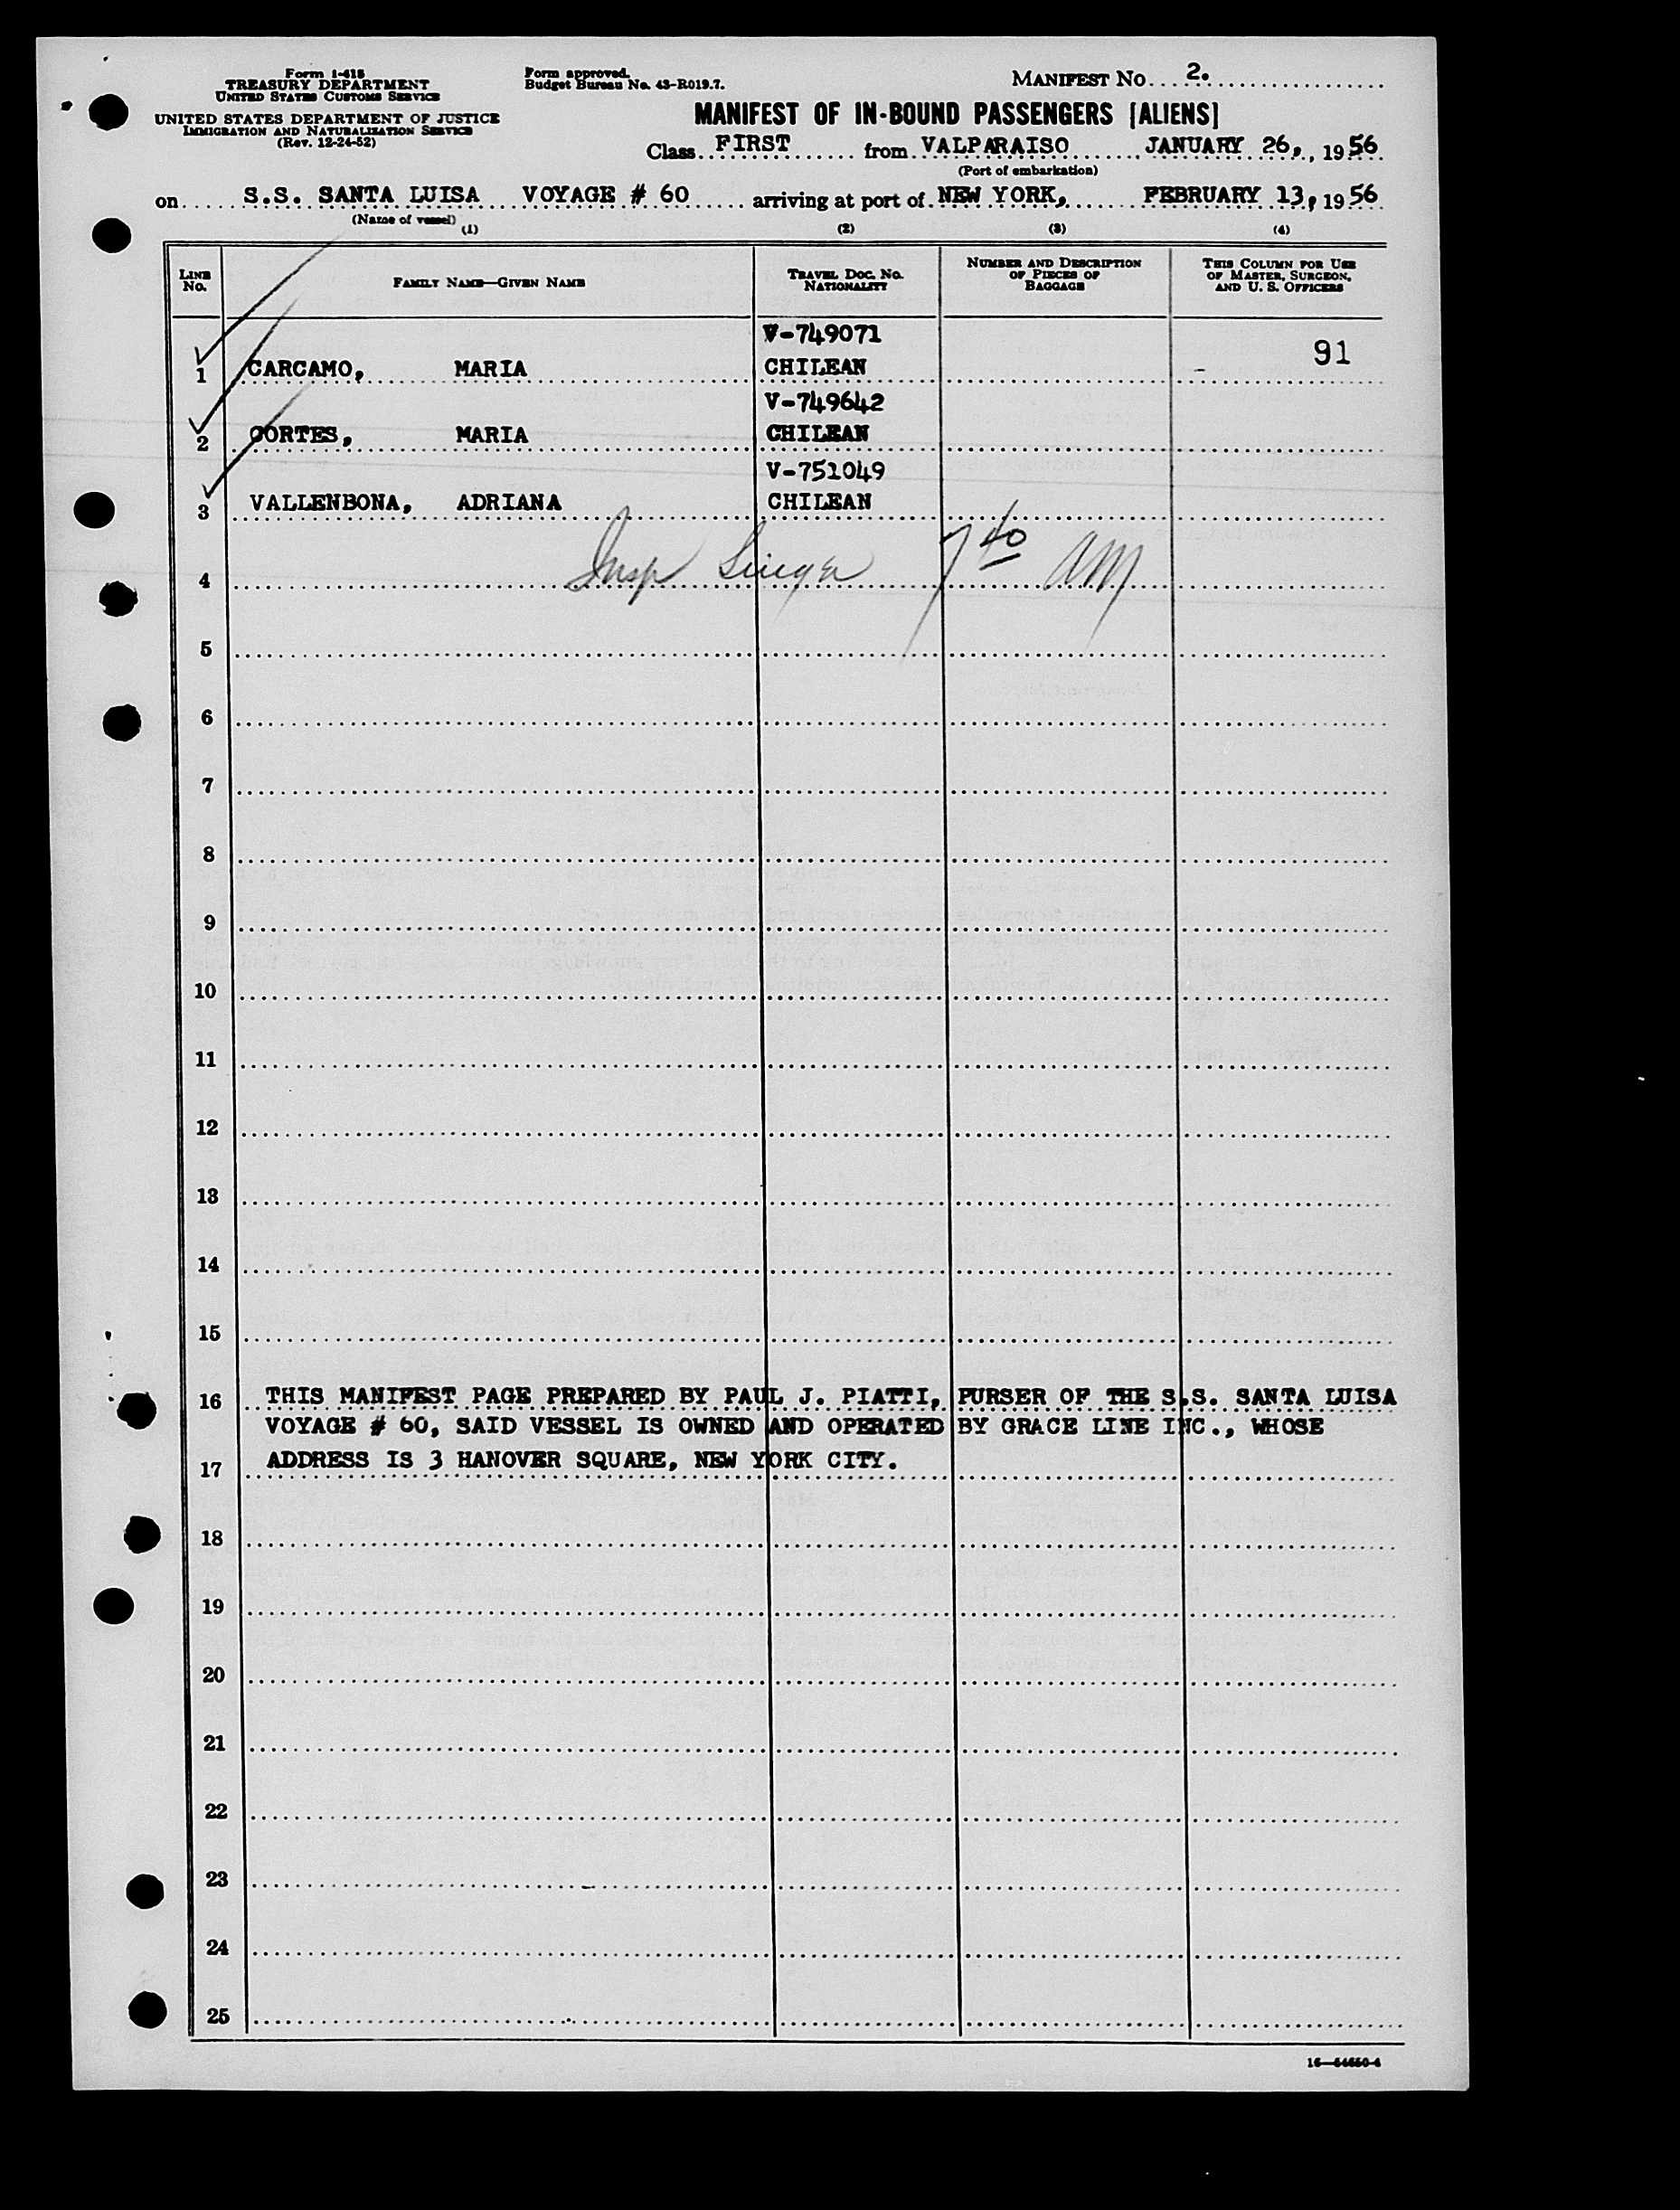 Form I-418
TREASURY DEPARTMENT
UNITED STATES CUSTOMS SERVICE
UNITED STATES DEPARTMENT OF JUSTICE
IMMIGRATION AND NATURALIZATION SERVICE
(Rev. 12-24-52)
Form approved.
Budget Bureau No. 43-R019.7.
MANIFEST NO. 2.
MANIFEST OF IN-BOUND PASSENGERS [ALIENS]
Class FIRST from VALPARAISO, JANUARY 26,, 1956
(Port of embarkation)
on S.S. SANTA LUISA VOYAGE # 60 arriving at port of NEW YORK, FEBRUARY 13, 1956
(Name of vessel)
(1) (2) (3) (4)
LINE No. FAMILY NAME—GIVEN NAME TRAVEL DOC. NO. NATIONALITY NUMBER AND DESCRIPTION OF PIECES OF BAGGAGE THIS COLUMN FOR USE OF MASTER, SURGEON, AND U. S. OFFICERS
V-749071
1 CARCAMO, MARIA CHILEAN 91
V-749642
2 CORTES, MARIA CHILEAN
V-751049
3 VALLENBONA, ADRIANA CHILEAN
4 Insp 7 40 AM
5
6
7
8
9
10
11
12
13
14
15
16 THIS MANIFEST PAGE PREPARED BY PAUL J. PIATTI, PURSER OF THE S.S. SANTA LUISA
VOYAGE # 60, SAID VESSEL IS OWNED AND OPERATED BY GRACE LINE INC., WHOSE
17 ADDRESS IS 3 HANOVER SQUARE, NEW YORK CITY.
18
19
20
21
22
23
24
25
16—54650-4